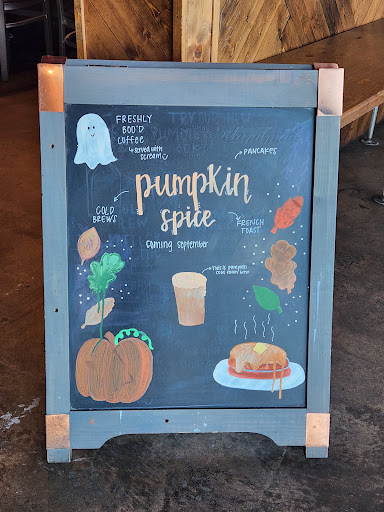 FRESHLY
BOO'D
COFFEE
↳ served with
scream
PANCAKES
pumpkin
spice
COLD
BREWS
FRENCH
TOAST
Coming September
This is pumpkin